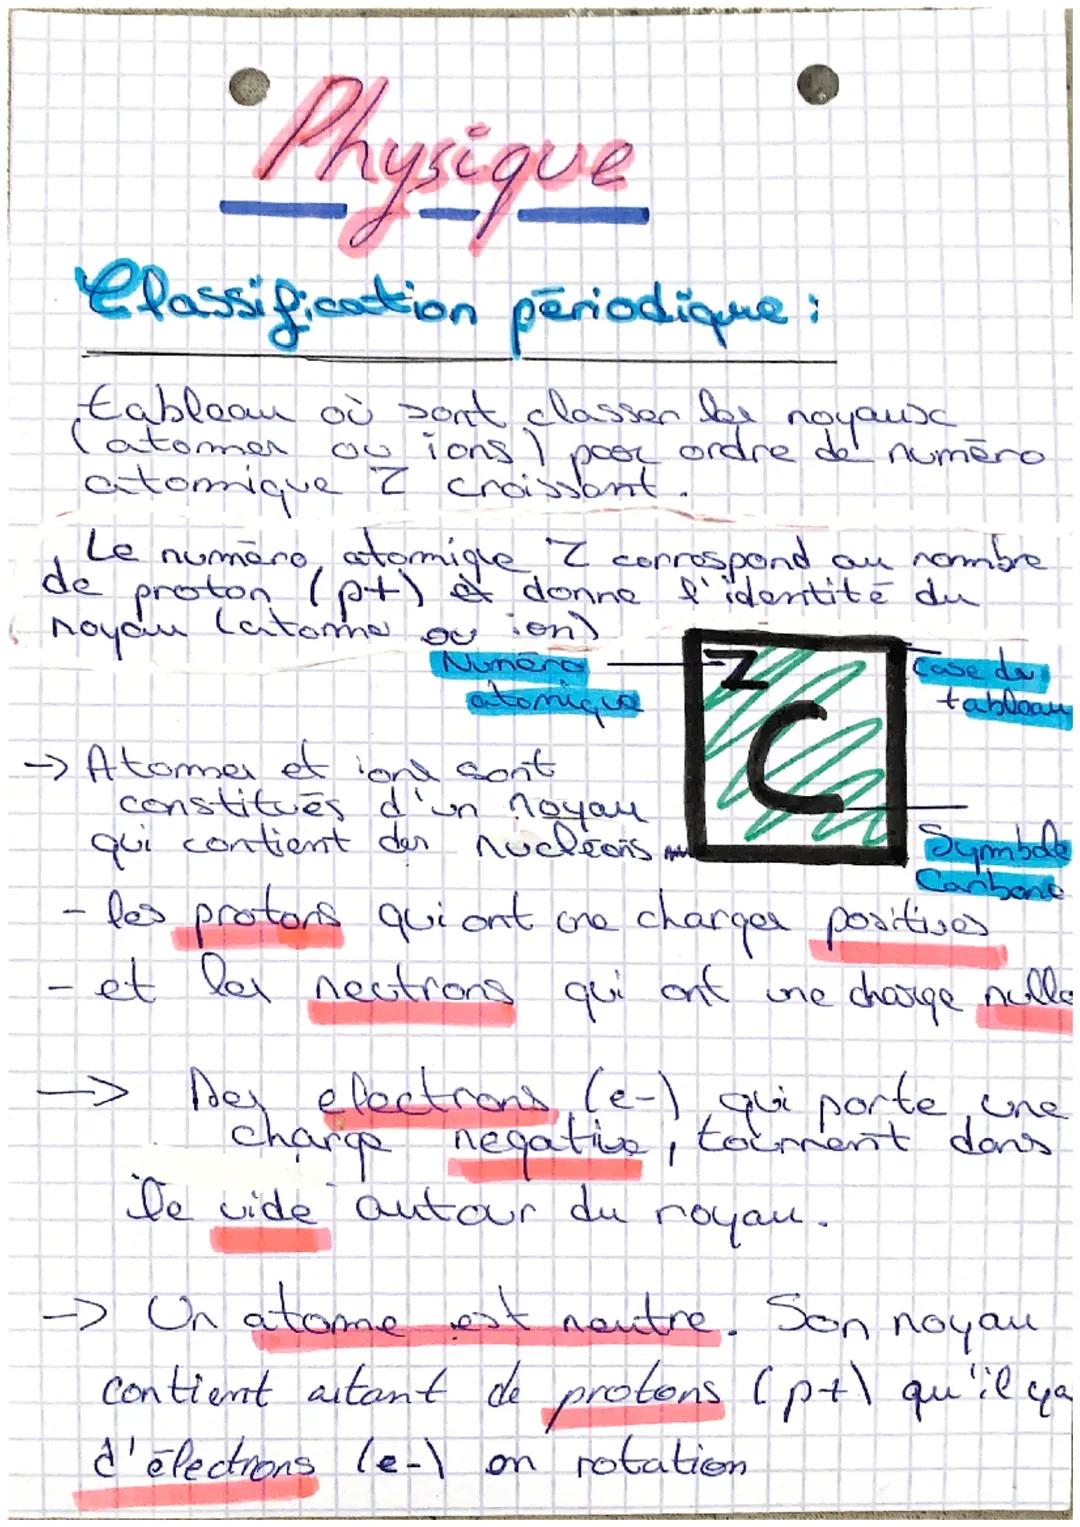 Physique
Classification périodique :
tableau où sont classer les noyaux
(atomes ou ions) par ordre de numéro
atomique Z croissant.
Le numéro atomique Z correspond au nombre
de proton (p+) et donne l'identité du
noyau (atome ou ion)
Numéro
atomique
Z
C
Case du
tableau
Symbole
Carbone
-> Atomes et ions sont
constitués d'un noyau
qui contient des nucléons
- les protons qui ont une charges positives
- et les neutrons qui ont une charge nulle
-> Des electrons (e-) qui porte une
charge negative, tournent dans
le vide autour du noyau.
-> Un atome est neutre. Son noyau
contient autant de protons (p+) qu'il ya
d'électrons (e-) en rotation